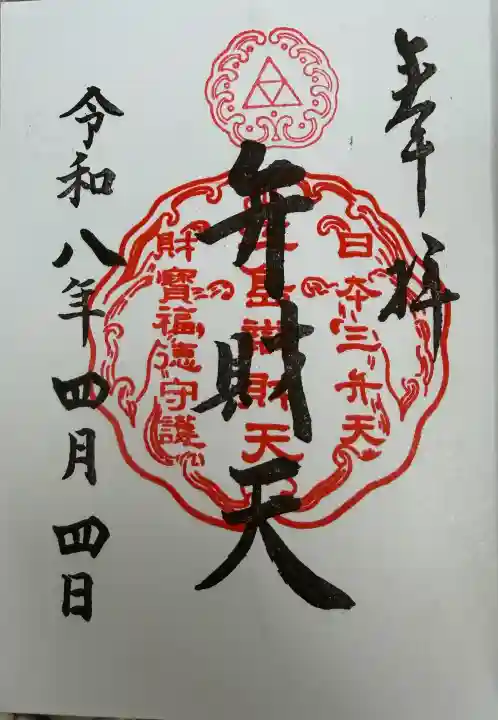 奉拝
日本三弁天
弁財天
島辯財天
財寶福徳守護
令和八年四月四日